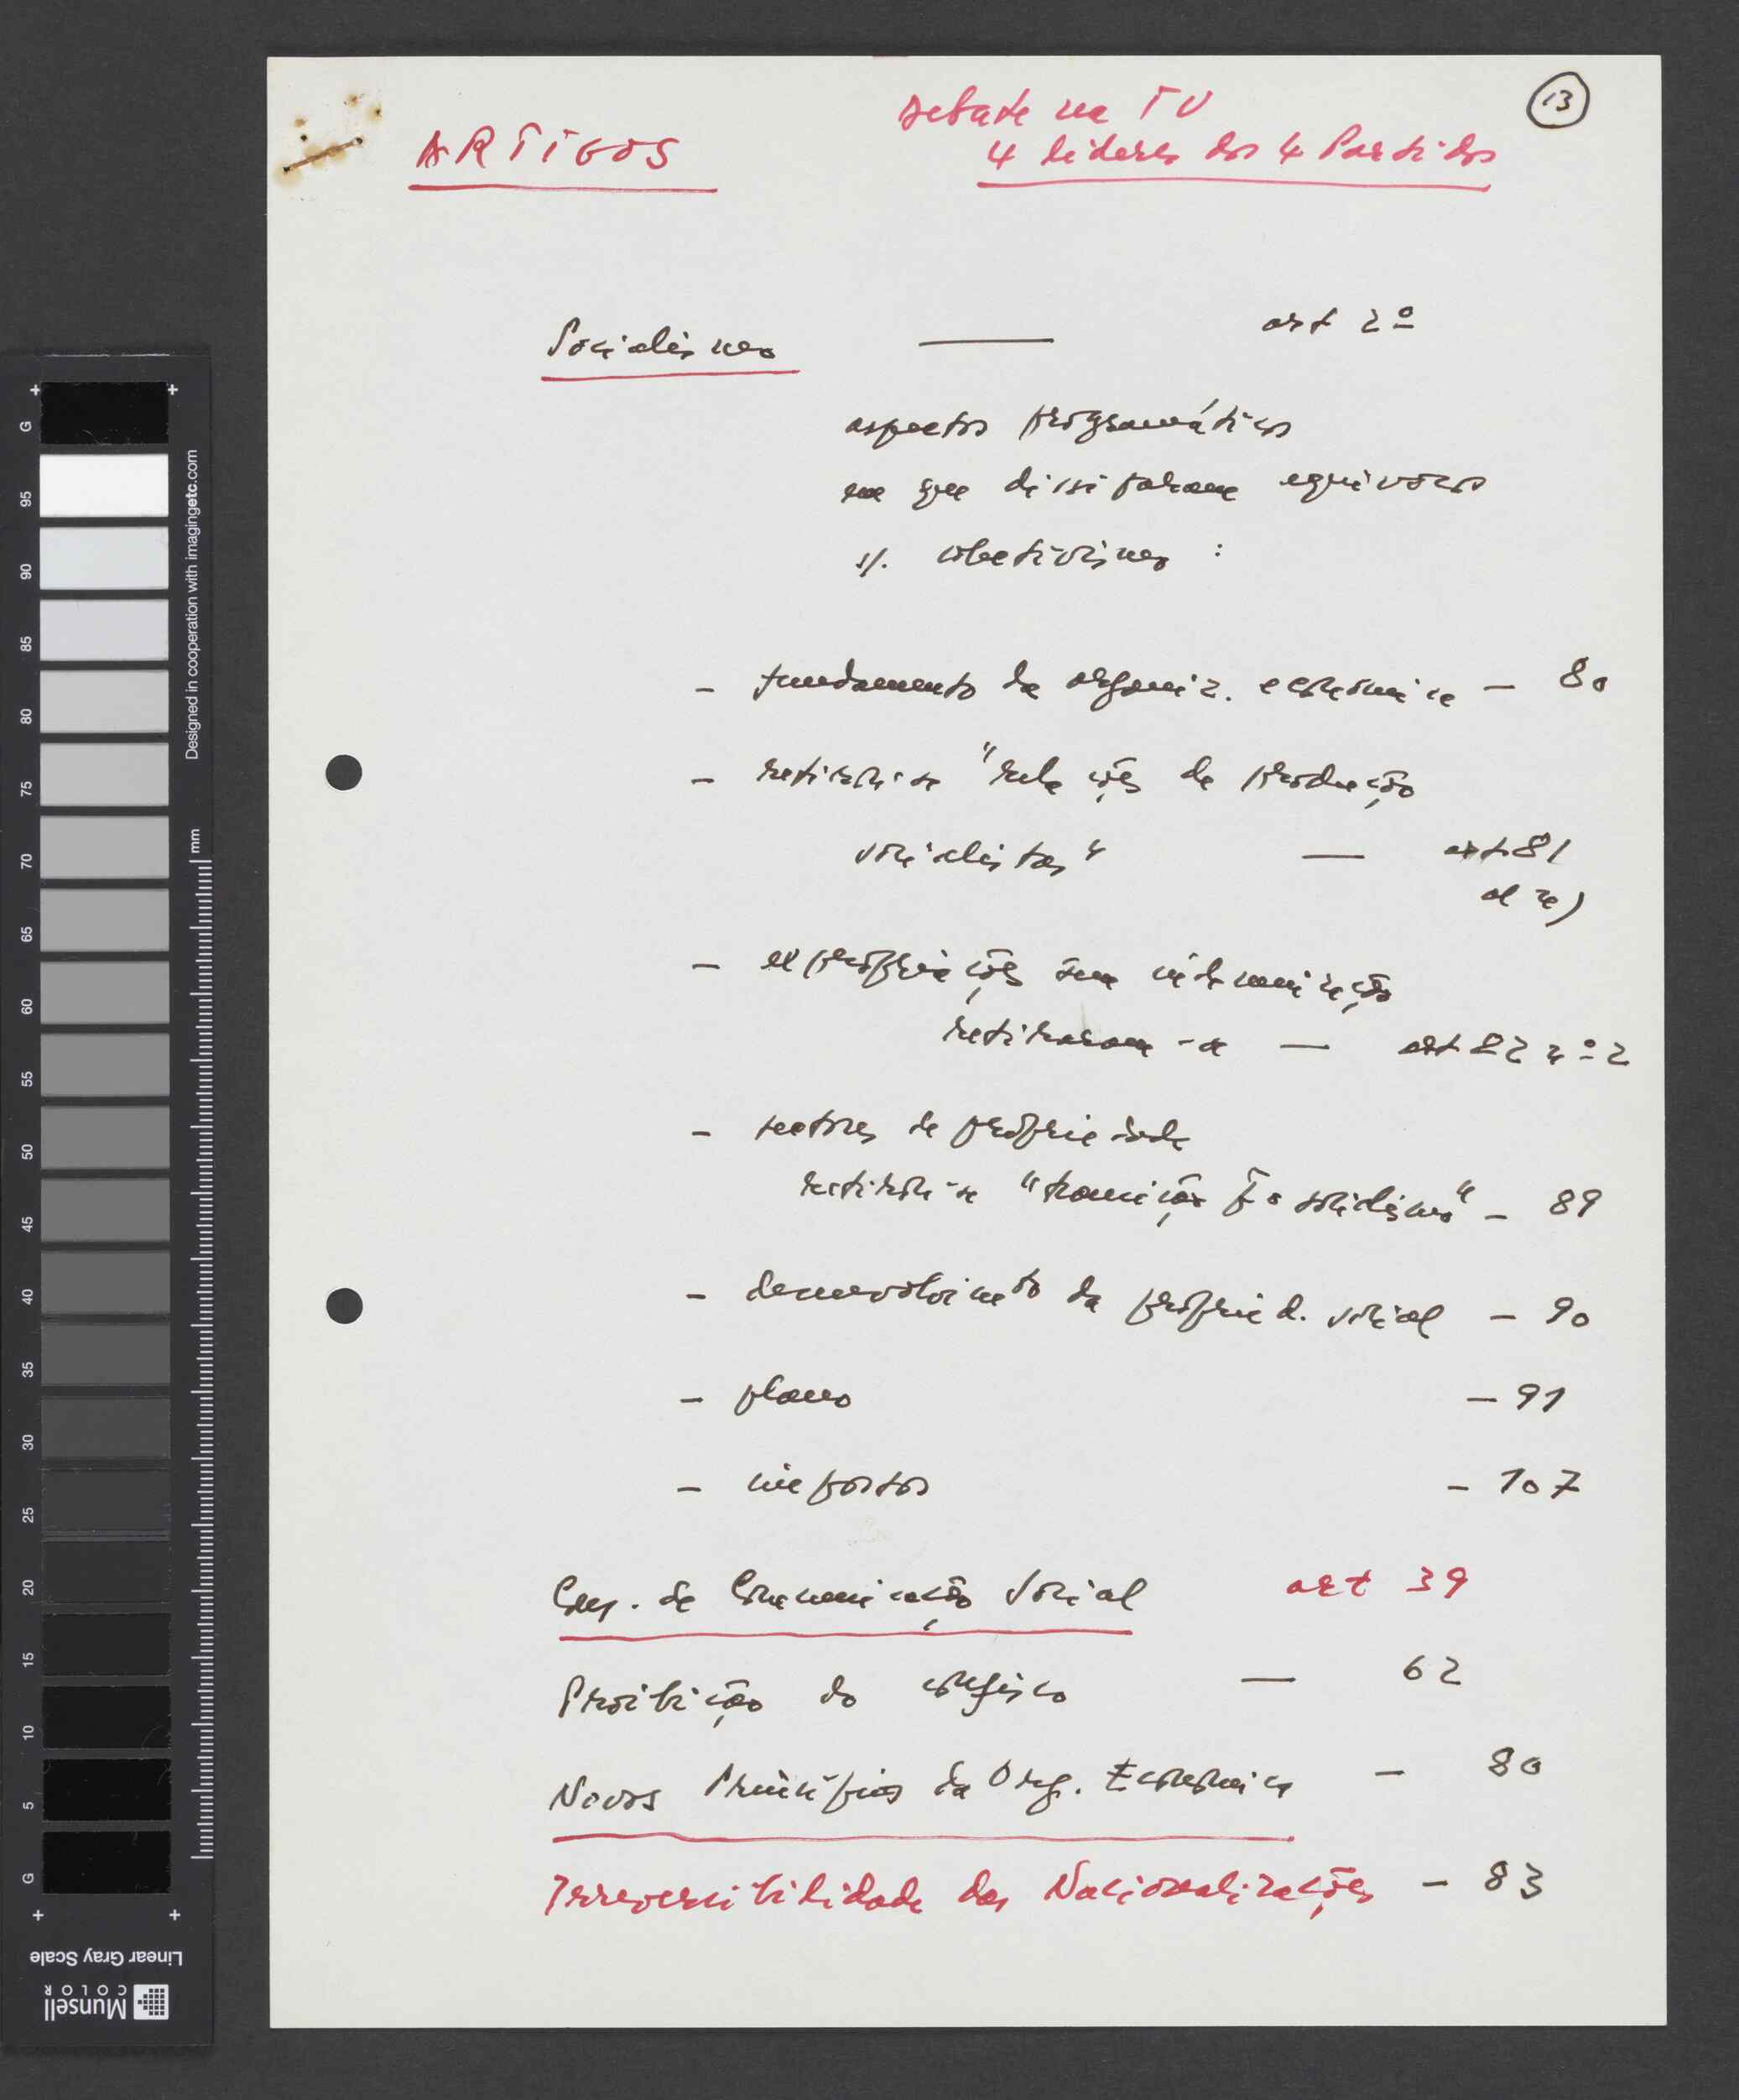 13
Debate na TV
ARTIGOS
4 líderes dos 4 Partidos
Socialismo — art 2º
aspectos programáticos
em que dissiparam equívocos
s/. coletivismo :
- fundamento da organiz. económica - 80
- retirou-se "relações de produção
socialistas" — art 81
al n)
- expropriações sem indemnização
retiraram-se — art 82 nº 2
- sectores de propriedade
retirou-se "transição p. o socialismo" - 89
- desenvolvimto da propried. social - 90
- plano - 91
- impostos - 107
Cons. de Comunicação Social art 39
Proibição do confisco — 62
Novos Princípios da Org. Económica - 80
Irreversibilidade das Nacionalizações - 83
G
95
90
85
80
75
70
65
60
55
50
45
40
35
30
25
20
15
10
5
G
mm
Designed in cooperation with imagingetc.com
Linear Gray Scale
Munsell
COLOR